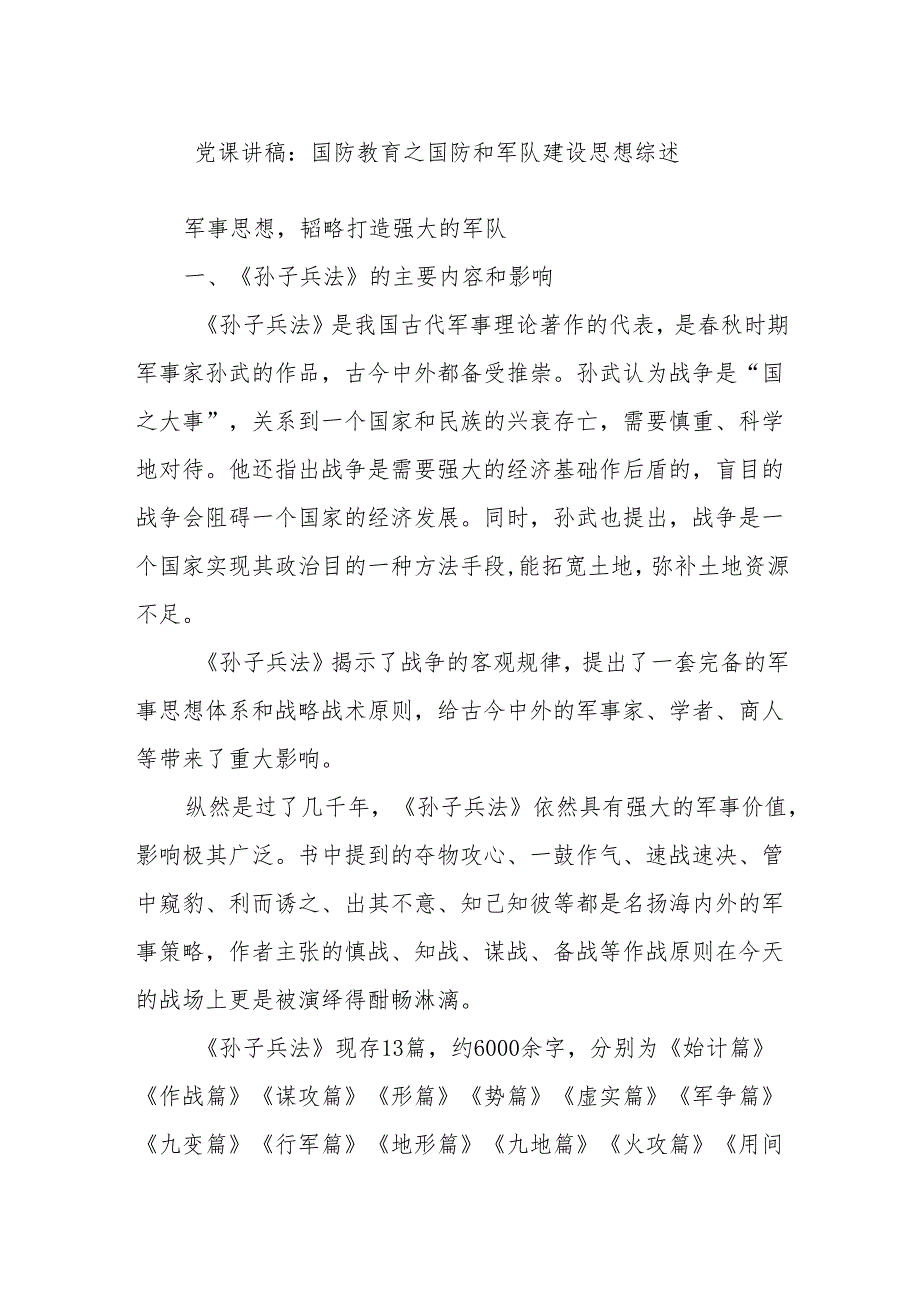 党课讲稿：国防教育之国防和军队建设思想综述
军事思想，韬略打造强大的军队
一、《孙子兵法》的主要内容和影响
《孙子兵法》是我国古代军事理论著作的代表，是春秋时期
军事家孙武的作品，古今中外都备受推崇。孙武认为战争是“国
之大事”，关系到一个国家和民族的兴衰存亡，需要慎重、科学
地对待。他还指出战争是需要强大的经济基础作后盾的，盲目的
战争会阻碍一个国家的经济发展。同时，孙武也提出，战争是一
个国家实现其政治目的一种方法手段,能拓宽土地，弥补土地资源
不足。
《孙子兵法》揭示了战争的客观规律，提出了一套完备的军
事思想体系和战略战术原则，给古今中外的军事家、学者、商人
等带来了重大影响。
纵然是过了几千年，《孙子兵法》依然具有强大的军事价值，
影响极其广泛。书中提到的夺物攻心、一鼓作气、速战速决、管
中窥豹、利而诱之、出其不意、知己知彼等都是名扬海内外的军
事策略，作者主张的慎战、知战、谋战、备战等作战原则在今天
的战场上更是被演绎得酣畅淋漓。
《孙子兵法》现存13篇，约6000余字，分别为《始计篇》
《作战篇》《谋攻篇》《形篇》《势篇》《虚实篇》《军争篇》
《九变篇》《行军篇》《地形篇》《九地篇》《火攻篇》《用间